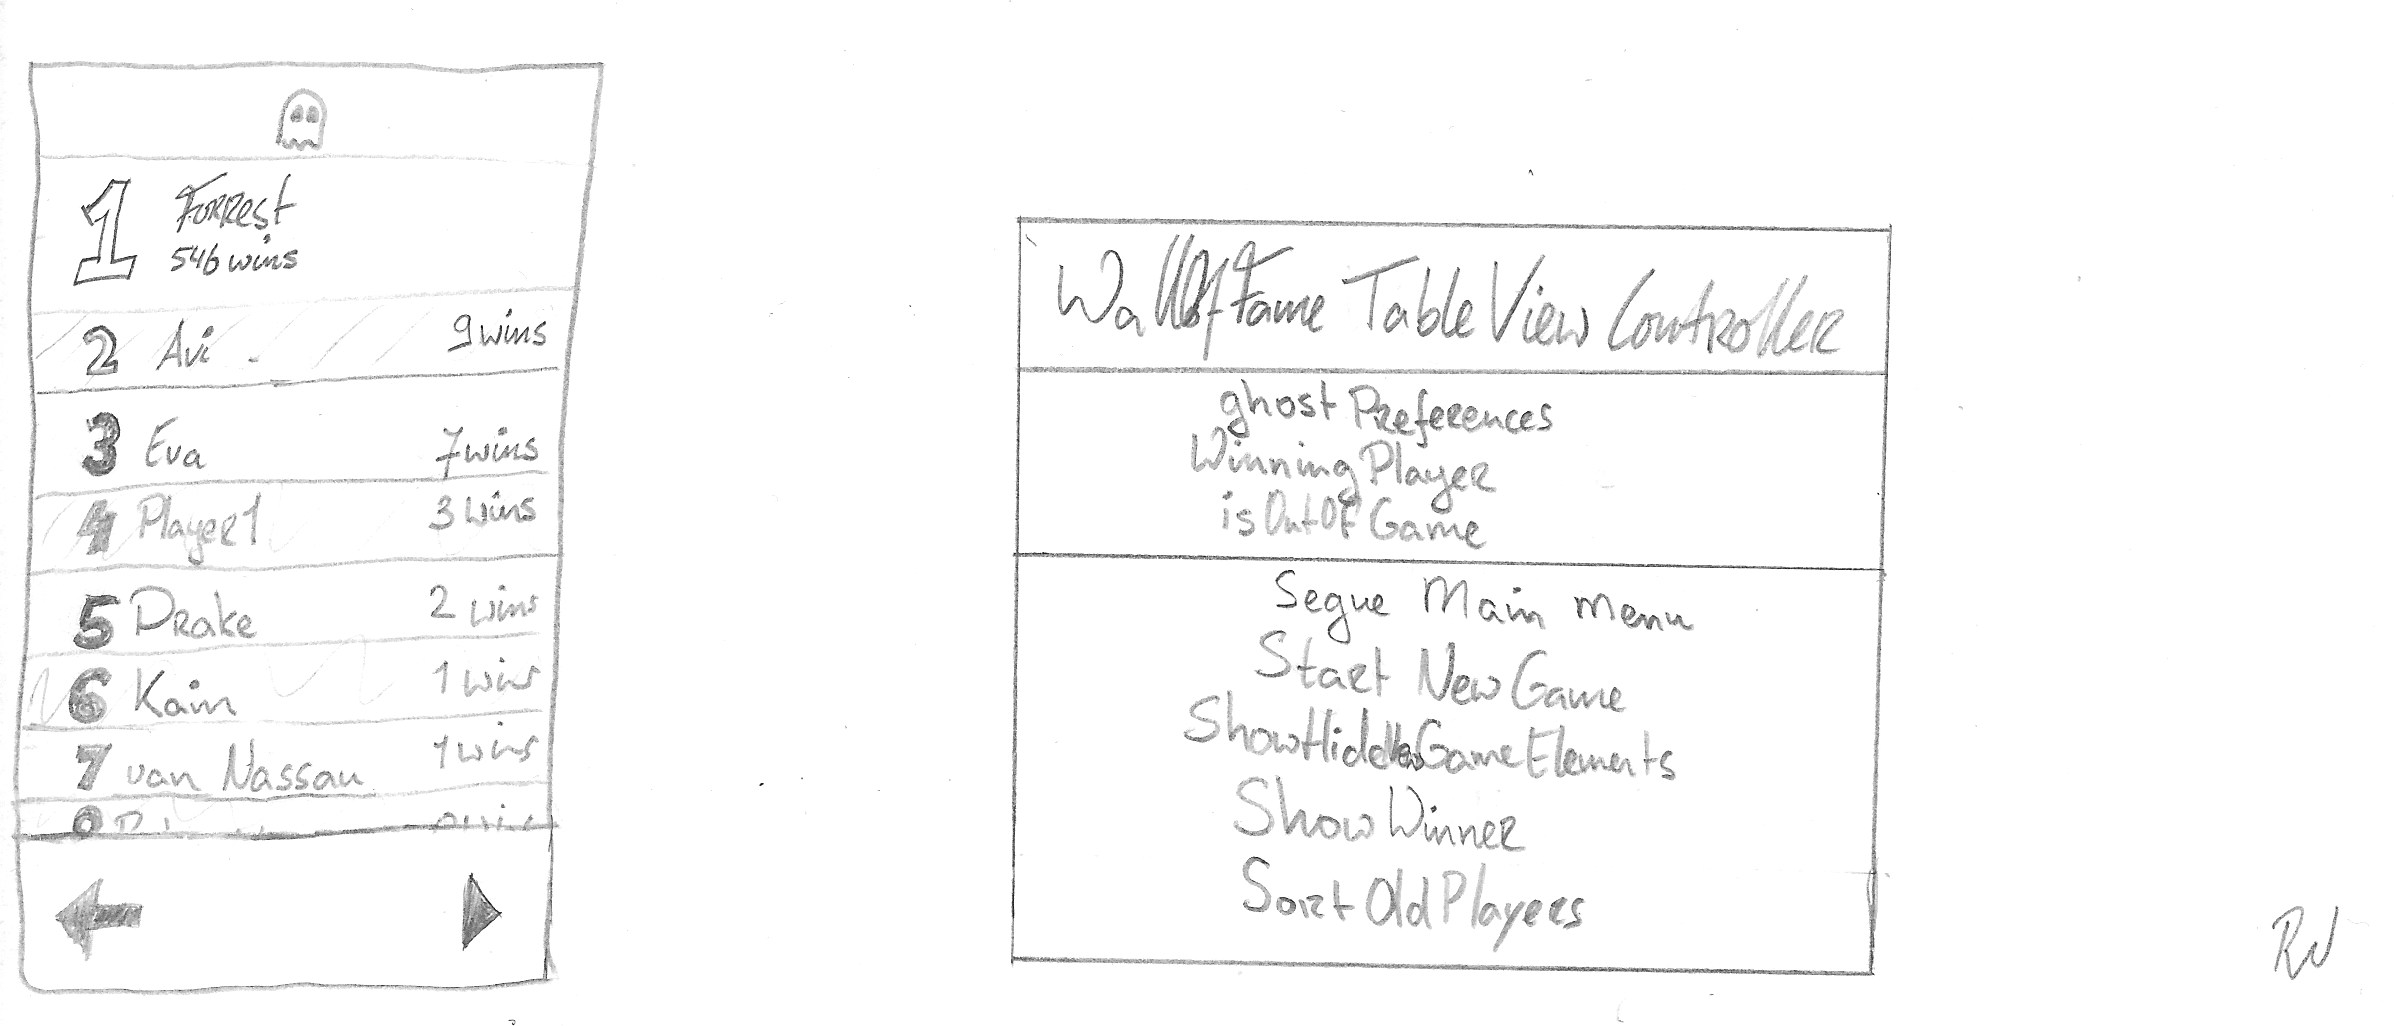 1 Forrest
546 wins
2 Avi 9 wins
3 Eva 7 wins
4 Player1 3 wins
5 Drake 2 wins
6 Kain 1 wins
7 van Nassau 1 wins
WallOfFame TableViewController
ghostPreferences
WinningPlayer
isOutOfGame
Segue Main menu
Start New Game
ShowHiddenGameElements
ShowWinner
Sort OldPlayers
RW